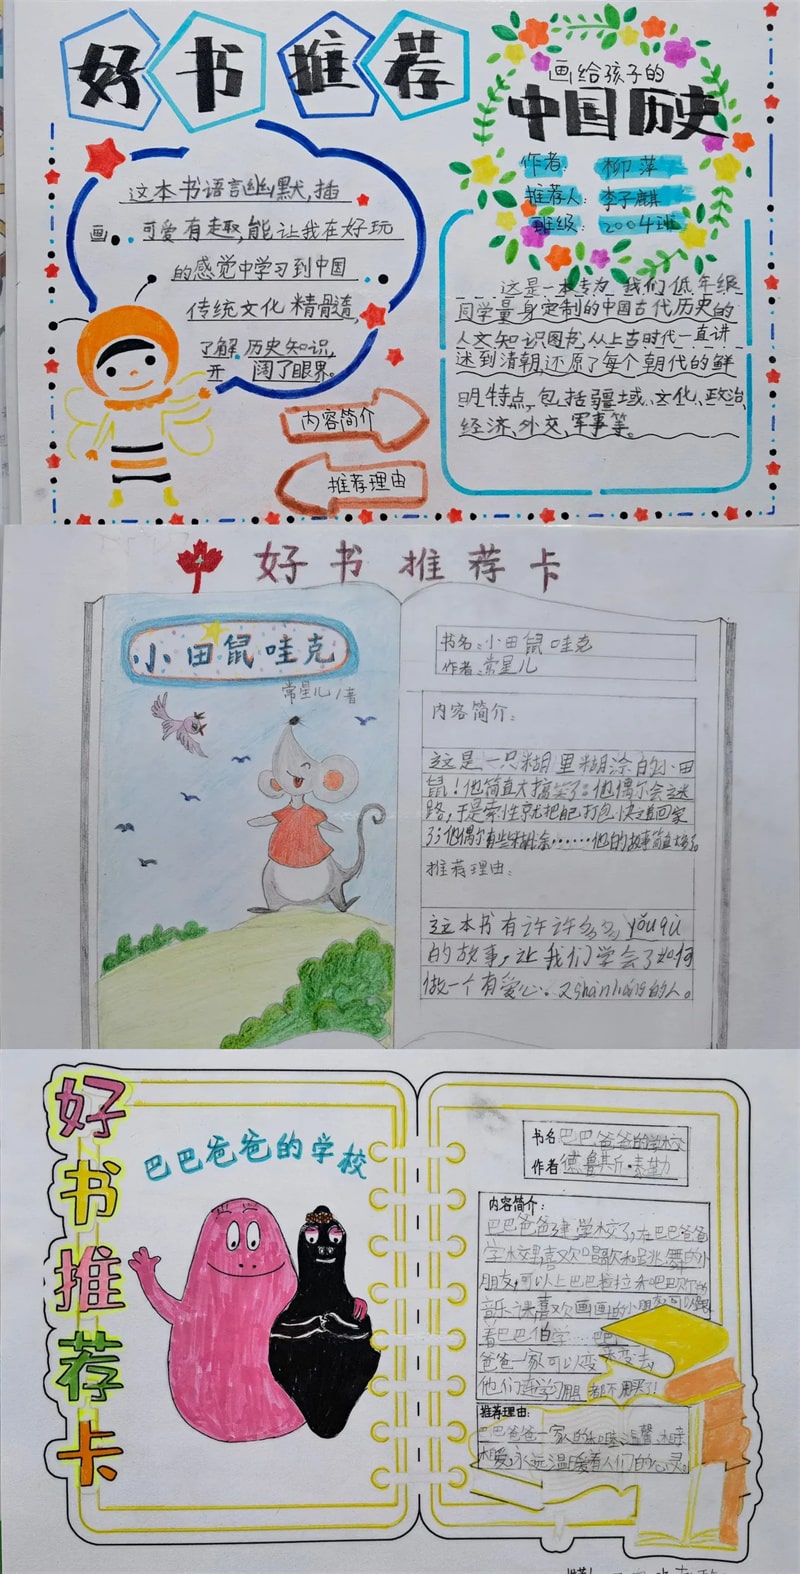 好书推荐
画给孩子的
中国历史
作者: 柳萍
推荐人: 李子麒
班级: 2004班
这本书语言幽默,插
画 可爱有趣,能让我在好玩
的感觉中学习到中国
传统文化精髓,
了解历史知识,
开阔了眼界。
内容简介
推荐理由
这是一本专为我们低年级
同学量身定制的中国古代历史的
人文知识图书,从上古时代一直讲
述到清朝,还原了每个朝代的鲜
明特点,包括疆域、文化、政治、
经济、外交、军事等。
好书推荐卡
小田鼠哇克
常星儿/著
书名:小田鼠哇克
作者:常星儿
内容简介:
这是一只糊里糊涂的小田
鼠!他简直太搞笑了。他偶尔会迷
路,于是索性就把自己打包快递回家
了;他偶尔有些糊涂……他的故事简直
推荐理由:
这本书有许许多多yǒuqù
的故事,让我们学会了如何
做一个有爱心、的人。
好书推荐卡
巴巴爸爸的学校
书名 巴巴爸爸的学校
作者 德鲁斯·泰勒
内容简介:
巴巴爸爸建学校了,在巴巴爸爸
学校里,喜欢唱歌和跳舞的小
朋友,可以上巴巴拉拉和巴巴贝尔的
音乐课,喜欢画画的小朋友可以跟
着巴巴伯学……巴巴
爸爸一家可以变来变去,
他们连学习用具都不用买了!
推荐理由:
巴巴爸爸一家人的和睦、温馨、相
相爱,永远温暖着人们的心灵。